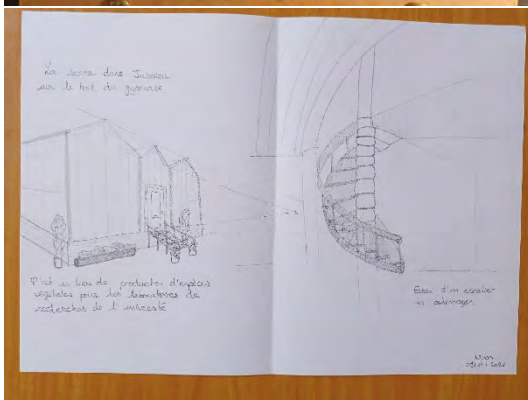 La serre dans Jussieu
sur le toit du gymnase
C'est un lieu de production d'espèces
végétales pour les laboratoires de
recherches de l'université
Essai d'un escalier
en